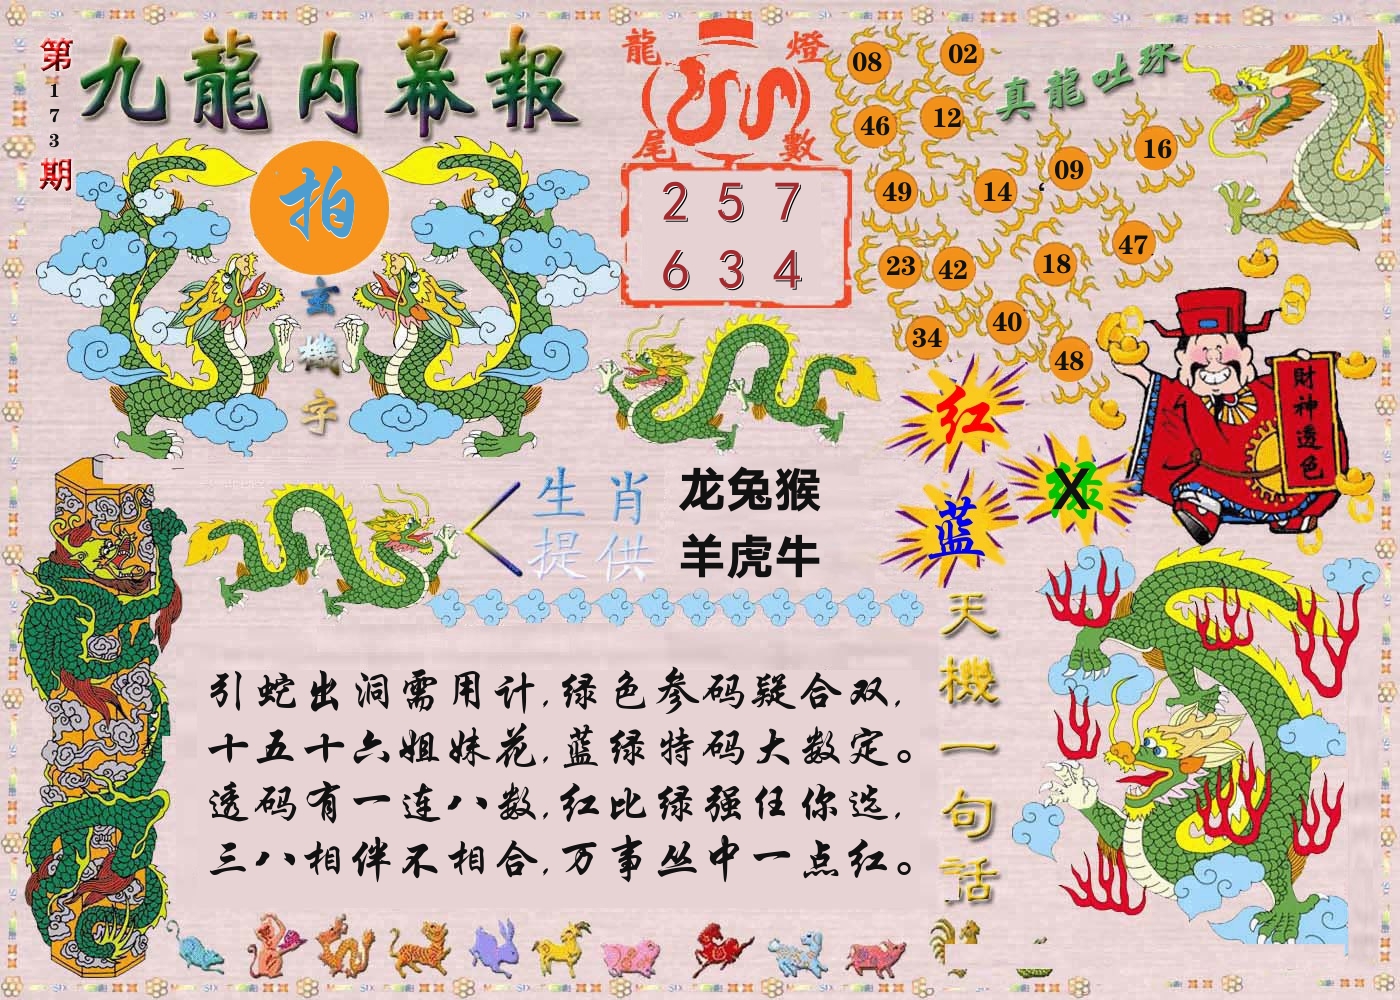 第173期
九龍内幕報
拍
玄機字
龍燈
尾數
2 5 7
6 3 4
真龍吐珠
08 02
46 12
49 14 09 16
23 42 18 47
34 40 48
红
蓝
绿
X
財神透色
生肖
提供
龙兔猴
羊虎牛
天機一句話
引蛇出洞需用计,绿色参码疑合双,
十五十六姐妹花,蓝绿特码大数定。
透码有一连八数,红比绿强任你选,
三八相伴不相合,万事丛中一点红。